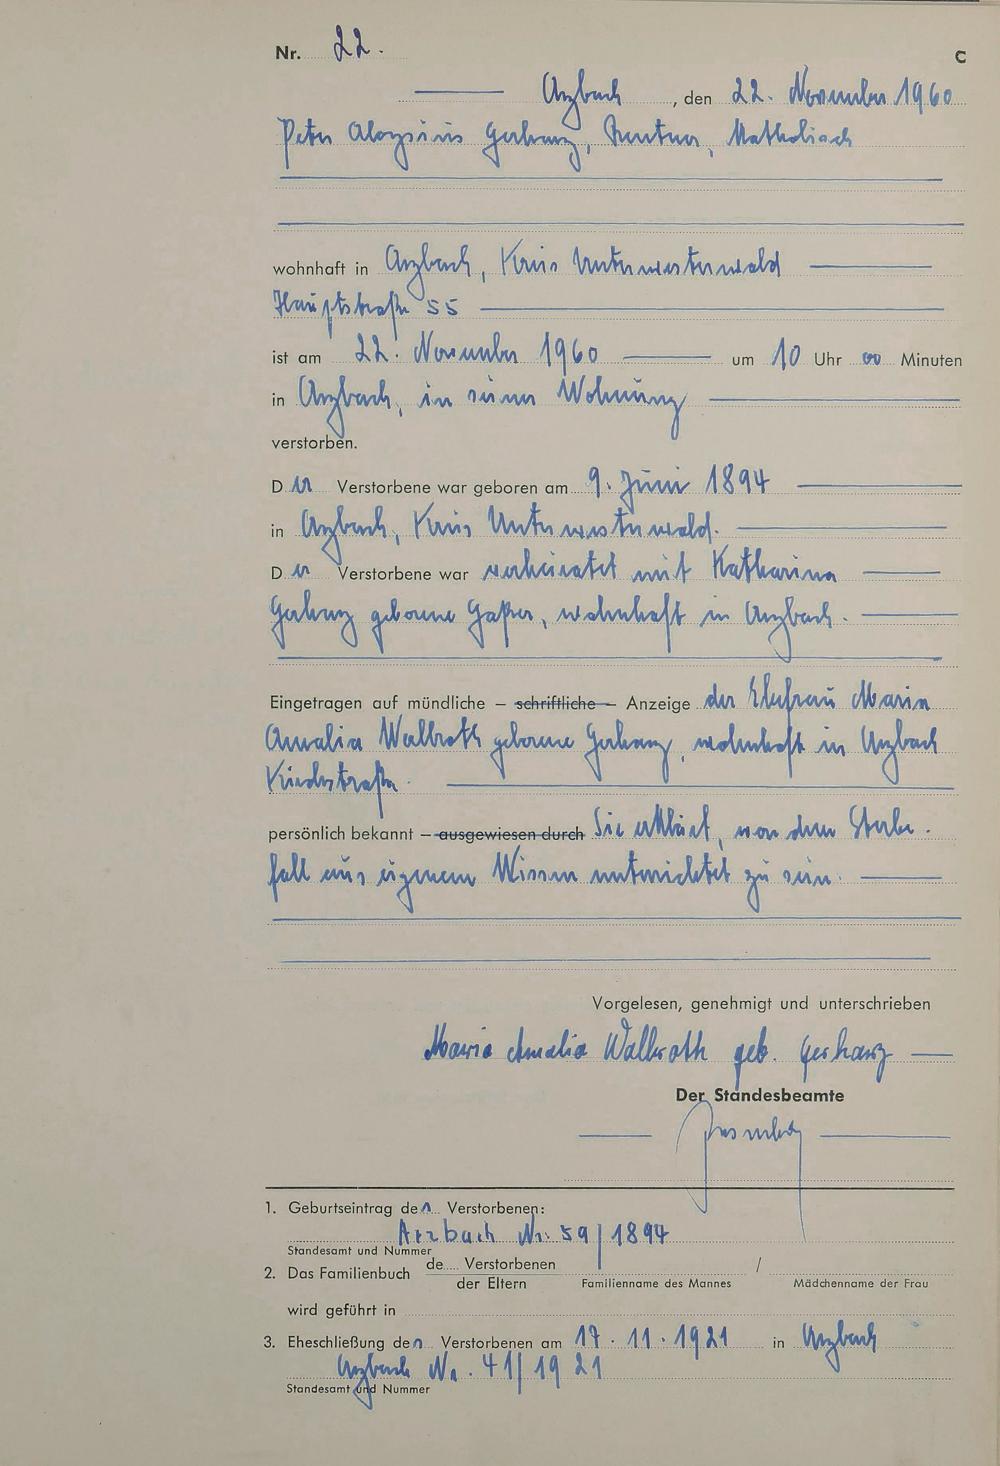 Nr. 22.
C
Arzbach, den 22. November 1960
Peter Aloysius Gerharz, Rentner, katholisch
wohnhaft in Arzbach, Kreis Unterwesterwald
Hauptstraße 55
ist am 22. November 1960 um 10 Uhr 00 Minuten
in Arzbach, in seiner Wohnung
verstorben.
Der Verstorbene war geboren am 9. Juni 1894
in Arzbach, Kreis Unterwesterwald.
Der Verstorbene war verheiratet mit Katharina
Gerharz geborene Gasser, wohnhaft in Arzbach.
Eingetragen auf mündliche – schriftliche – Anzeige der Ehefrau Maria
Amalia Wallroth geborene Gerharz, wohnhaft in Arzbach
Kirchstraße.
persönlich bekannt – ausgewiesen durch Sie erklärt, von dem Sterbe-
fall aus eigenem Wissen unterrichtet zu sein.
Vorgelesen, genehmigt und unterschrieben
Maria Amalia Wallroth geb. Gerharz
Der Standesbeamte
1. Geburtseintrag des Verstorbenen:
Arzbach Nr. 59/1894
Standesamt und Nummer
2. Das Familienbuch de Verstorbenen
der Eltern
/
Familienname des Mannes
Mädchenname der Frau
wird geführt in
3. Eheschließung des Verstorbenen am 17.11.1921 in Arzbach
Arzbach Nr. 41/1921
Standesamt und Nummer